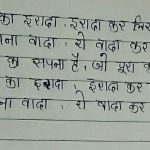 का इरादा, इरादा कर लि
ना वादा, ये वादा कर
का सपना है, जो पूरा क
का इरादा, इरादा कर
ना वादा, ये वादा कर